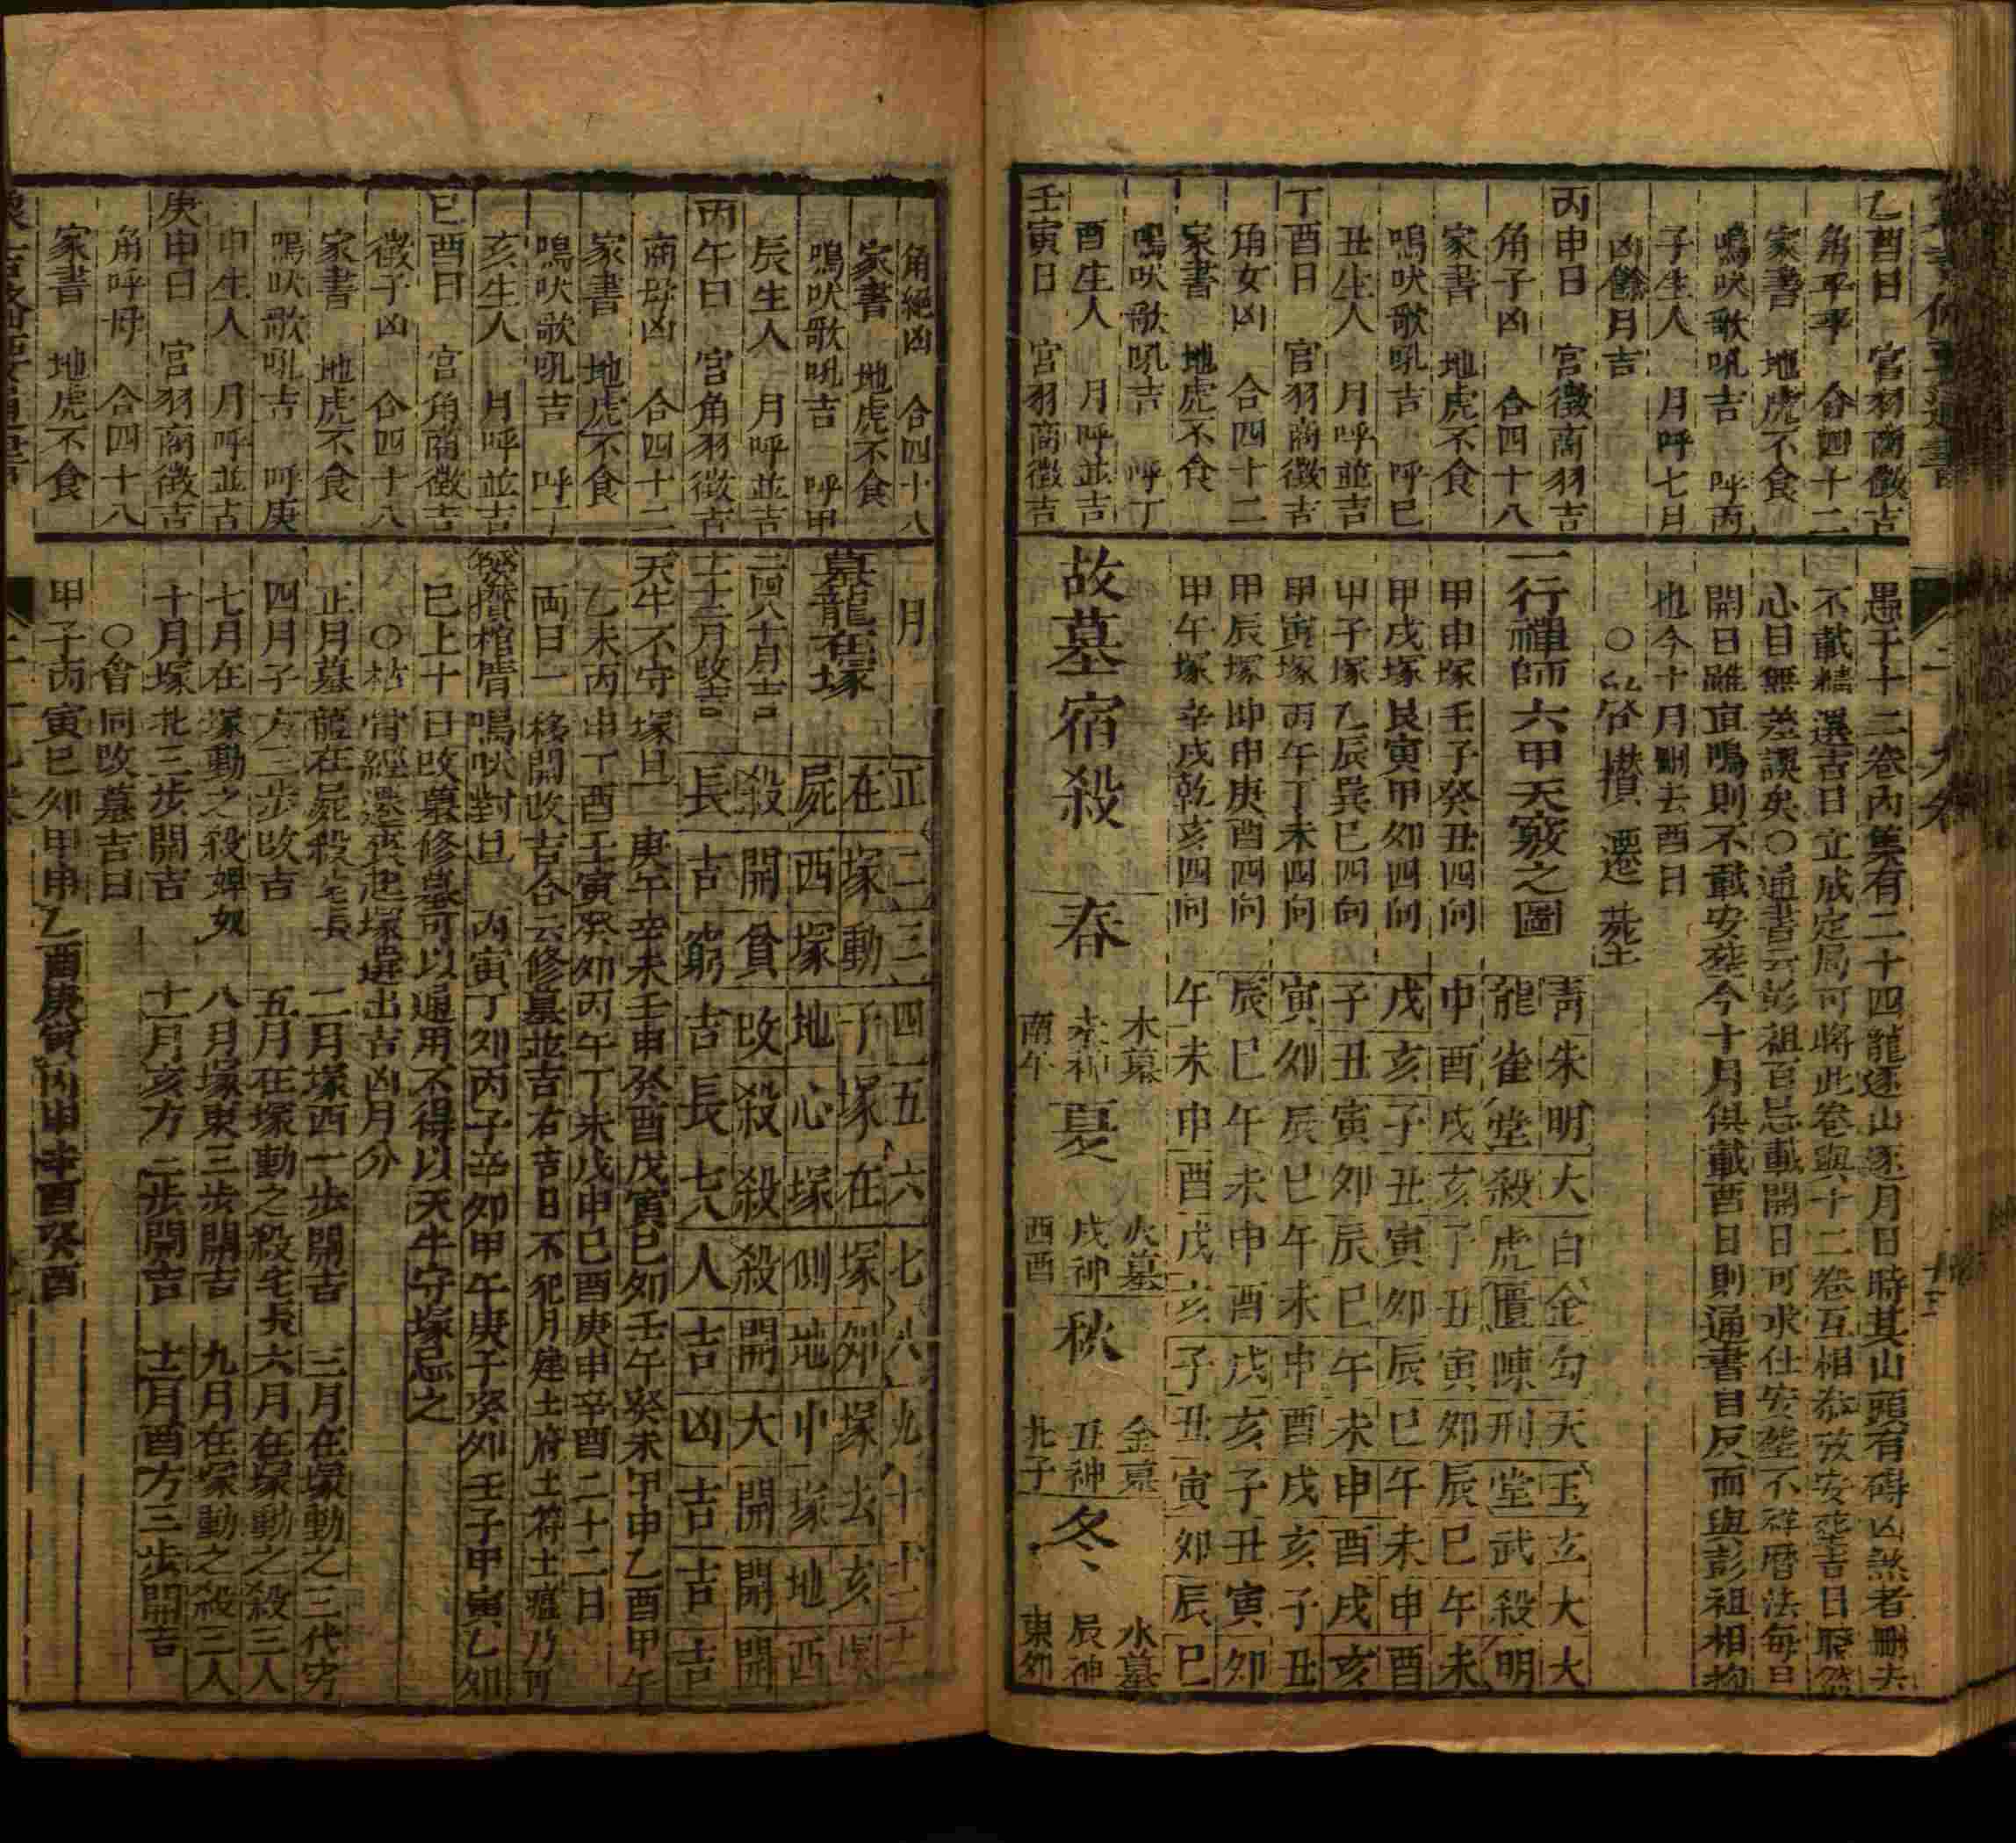 乙酉日　宮羽商徵吉
角平平　合四十二
家書　地虎不食
鳴吠歌吼吉　呼丙
子生人　月呼七日
凶餘月吉
丙申日　宮徵商羽吉
角子凶　合四十八
家書　地虎不食
鳴吠歌吼吉　呼巳
丑生人　月呼並吉
丁酉日　宮羽商徵吉
角女凶　合四十二
家書　地虎不食
鳴吠歌吼吉　呼丁
酉生人　月呼並吉
壬寅日　宮羽商徵吉
愚于十二卷內集有二十四龍逐山逐月日時其山頭有碍凶煞者刪去
不載精選吉日立成定局可將此卷與十二卷互相叅攷安塟吉日
心目無差誤矣○通書云彭祖百忌載開日可求仕安塟不祥曆法每日
開日雖宜鳴則不載安塟今十月俱載酉日則通書自反而與彭祖相拘
也今十月刪去酉日
攢遷塟
一行禪師六甲天竅之圖
青朱明大白金勾天玉玄大大
龍雀堂殺虎匱陳刑堂武殺明
甲申塚壬子癸丑四向　申酉戌亥子丑寅卯辰巳午未
甲戌塚艮寅甲卯四向　戌亥子丑寅卯辰巳午未申酉
甲子塚乙辰巽巳四向　子丑寅卯辰巳午未申酉戌亥
甲寅塚丙午丁未四向　寅卯辰巳午未申酉戌亥子丑
甲辰塚坤申庚酉四向　辰巳午未申酉戌亥子丑寅卯
甲午塚辛戌乾亥四向　午未申酉戌亥子丑寅卯辰巳
故墓宿殺
春　木墓　未神　南午
夏　火墓　戌神　西酉
秋　金墓　丑神　北子
冬　水墓　辰神　東卯
角絕凶　合四十八
家書　地虎不食
鳴吠歌吼吉　呼甲
辰生人　月呼並吉
丙午日　宮角羽徵吉
商母凶　合四十二
家書　地虎不食
鳴吠歌吼吉　呼丁
亥生人　月呼並吉
己酉日　宮角商徵吉
徵子凶　合四十八
家書　地虎不食
鳴吠歌吼吉　呼庚
申生人　月呼並吉
庚申日　宮羽商徵吉
角呼母　合四十八
家書　地虎不食
月　正二三四五六七八九十十一十二
墓龍在塚
在塚動子塚在塚卯塚去亥
屍西塚地心塚側地中塚地西
二四八十月吉　殺開貧改殺殺殺開大開開開
十二月改吉　長吉窮吉長七八人吉凶吉吉吉
天牛不守塚日　庚午辛未壬申癸酉戊寅己卯壬午癸未甲申乙酉甲午
乙未丙申丁酉壬寅癸卯丙午丁未戊申己酉庚申辛酉二十二日
兩日一移開改吉合云修墓並吉右吉日不犯月建土府土符土瘟乃可
攢棺用鳴吠對日　丙寅丁卯丙子辛卯甲午庚子癸卯壬子甲寅乙卯
巳上十日改墓修墓可以通用不得以天牛守塚忌之
○枯骨經遷葬起塚選出吉凶月分
正月墓龍在屍殺宅長　二月塚西一步開吉　三月在塚動之三代窮
四月子方三步改吉　五月在塚動之殺宅長　六月在塚動之殺三人
七月在塚動之殺婢奴　八月塚東三步開吉　九月在塚動之殺三人
十月塚北三步開吉　十一月亥方二步開吉　十二月酉方三步開吉
○會同改墓吉日
甲子丙寅己卯甲申乙酉庚寅丙申辛酉癸酉